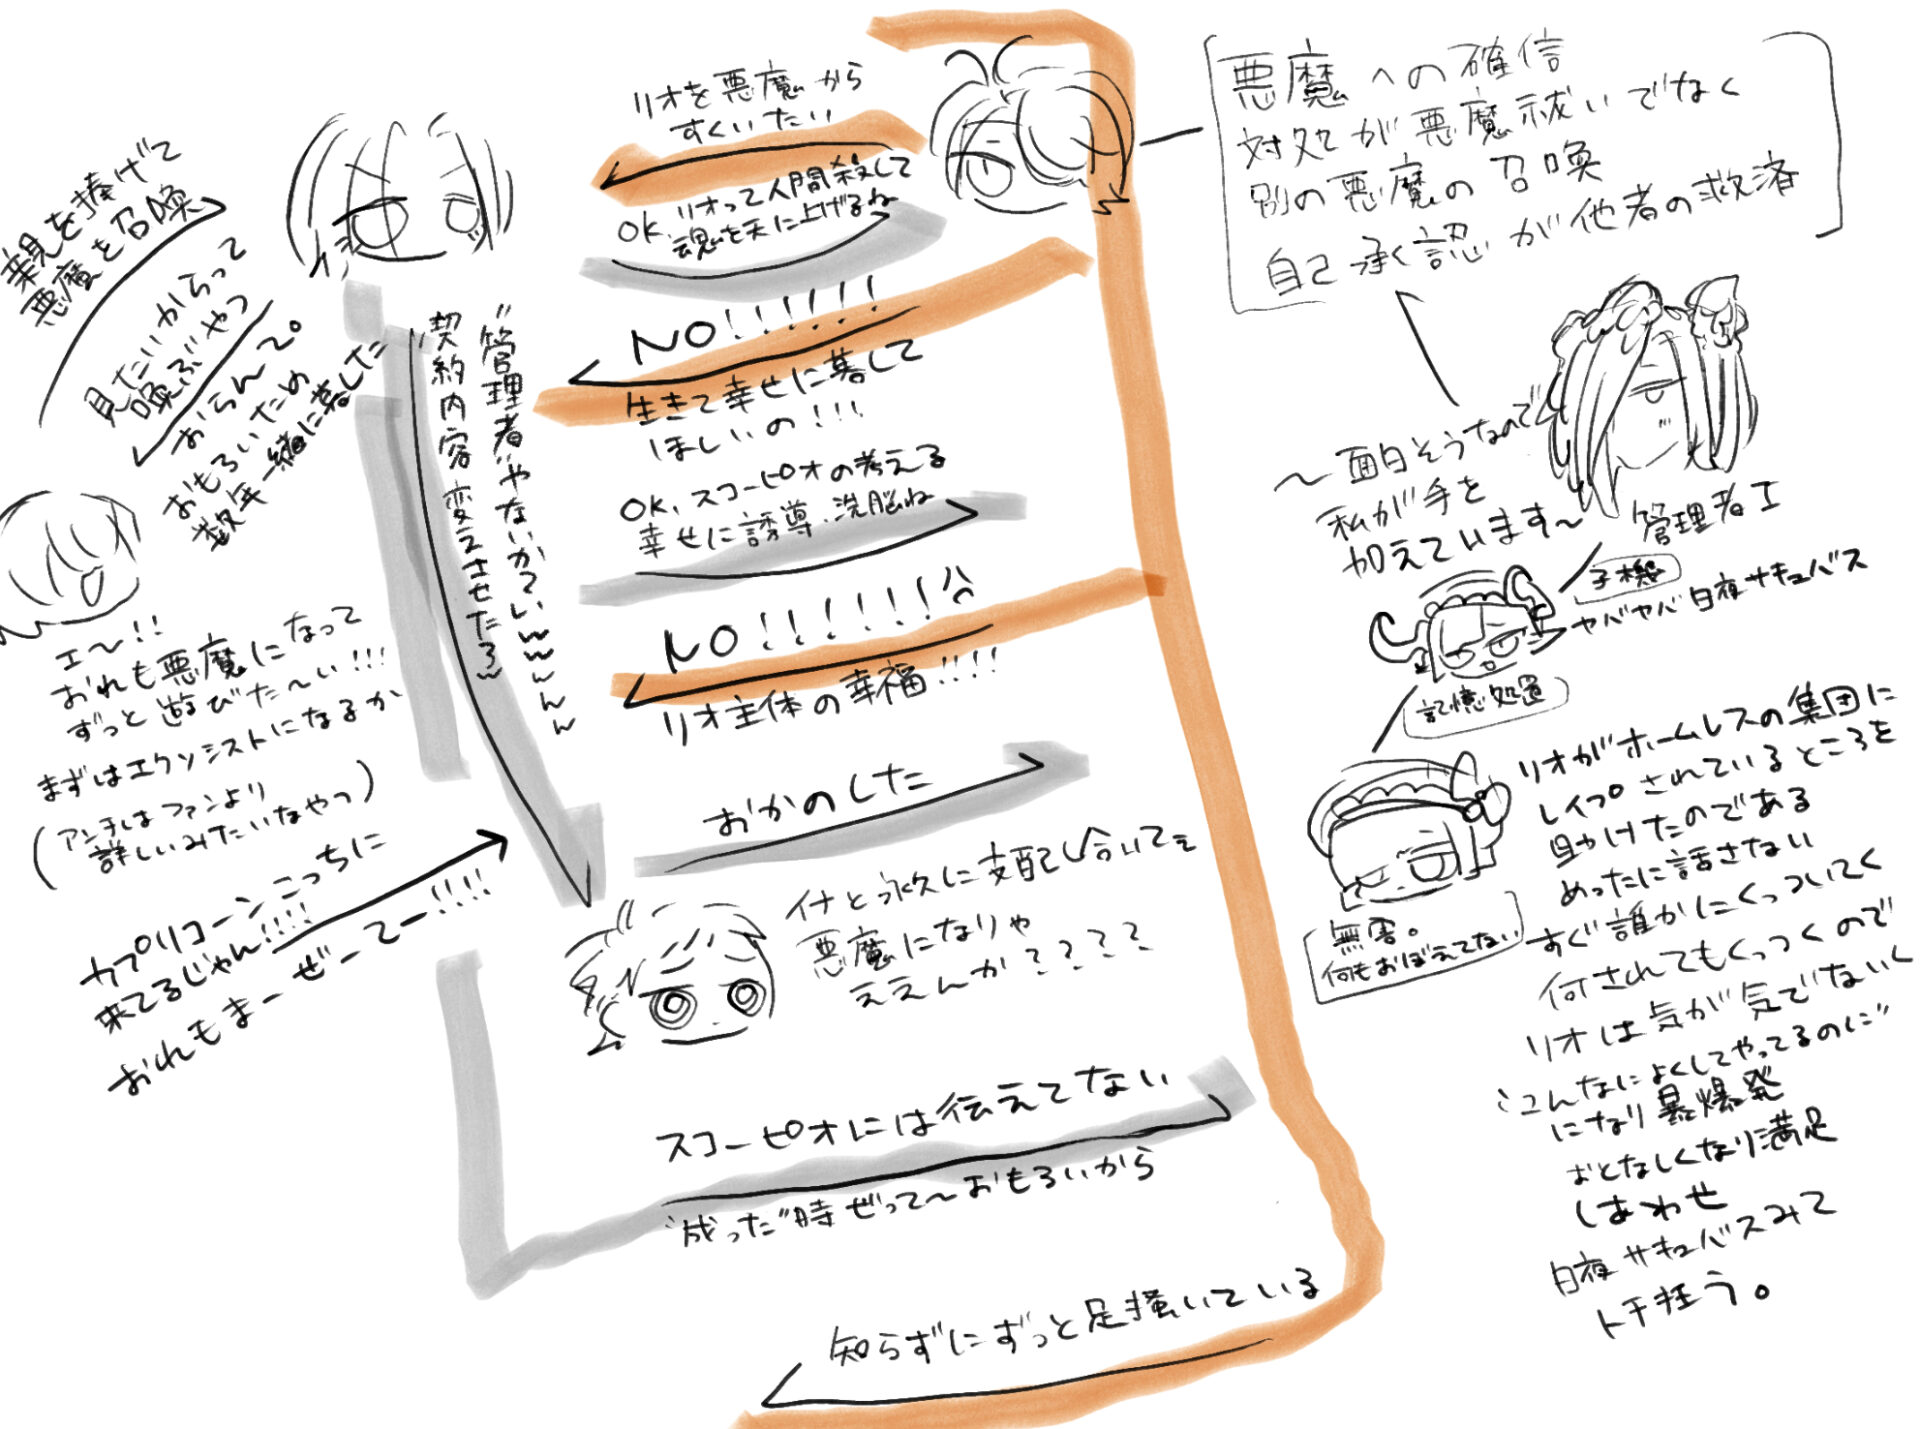 親を捧げて
悪魔を召喚
見たいからって
喚ぶやつ
おらんて。
おもろいため
数年一緒に暮した
エ〜!!
おれも悪魔になって
ずっと遊びた〜い!!!
まずはエクソシストになるか
(アンチしはファンより
詳しいみたいなやつ)
カプリコーンこっちに
来てるじゃん!!!!
おれもまーぜーてー!!!!
リオを悪魔から
すくいたい
OK、リオって人間殺して
魂を天に上げるね
NO!!!!!!
生きて幸せに暮して
ほしいの!!!
OK、スコーピオの考える
幸せに誘導、洗脳ね
NO!!!!!!!
リオ主体の幸福!!!!
おかのした
"管理者"やないかてぃwwwww
契約内容変えさせたろ
イナと永久に支配し合いてぇ
悪魔になりゃ
ええんか????
スコーピオには伝えてない
"成った"時ぜって〜おもろいから
知らずにずっと足掻いている
悪魔への確信
対処が悪魔祓いでなく
別の悪魔の召喚
自己承認が他者の救済
〜面白そうなので
私が手を
加えています〜
管理者I
子機
ヤバヤバ白夜サキュバス
記憶処置
無害。
何もおぼえてない
リオがホームレスの集団に
レイプされているところを
助けたのである
めったに話さない
すぐ誰かにくっついてく
何されてもくっつくので
リオは気が気でないく
"こんなによくしてやってるのに"
になり暴爆発
おとなしくなり満足
しあわせ
白夜サキュバスみて
トチ狂う。